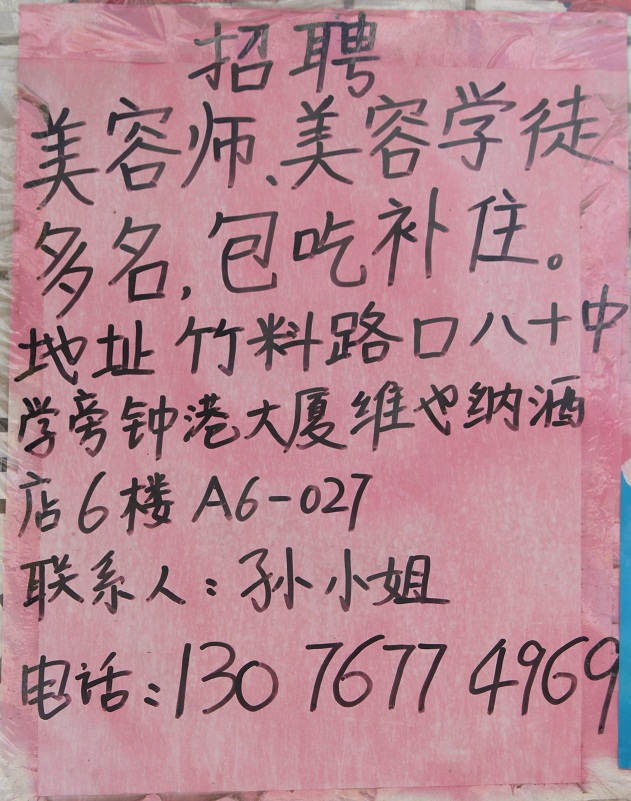 招聘
美容师、美容学徒
多名，包吃补住。
地址竹料路口八十中
学旁钟港大厦维也纳酒
店6楼A6-027
联系人：孙小姐
电话：130 7677 4969